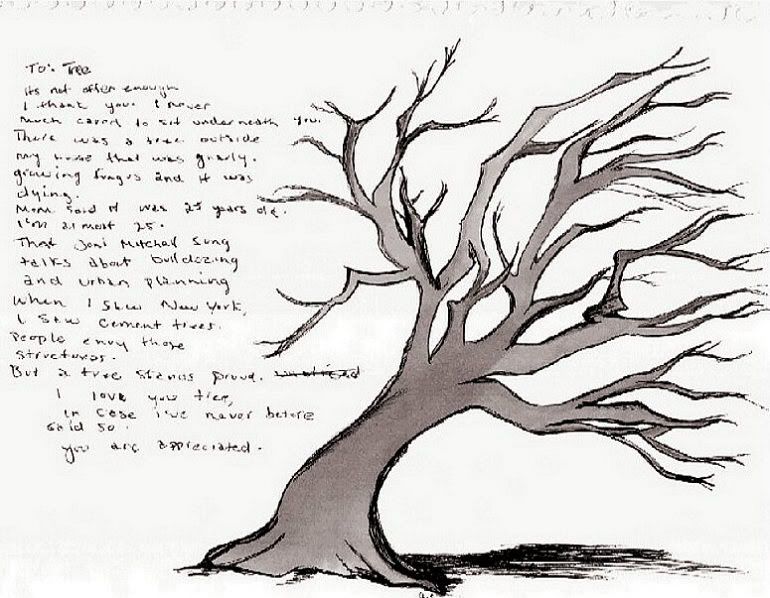 To: Tree
its not often enough
I thank you. I never
much cared to sit underneath you.
There was a tree outside
my house that was gnarly.
growing fungus and it was
dying.
Mom said it was 25 years old.
I'm almost 25.
That Joni Mitchal Song
talks about bulldozing
and urban planning
when I saw New York,
I saw cement trees.
People envy those
structures.
But a tree stands proud.
I love you tree,
in case i've never before
said so.
you are appreciated.